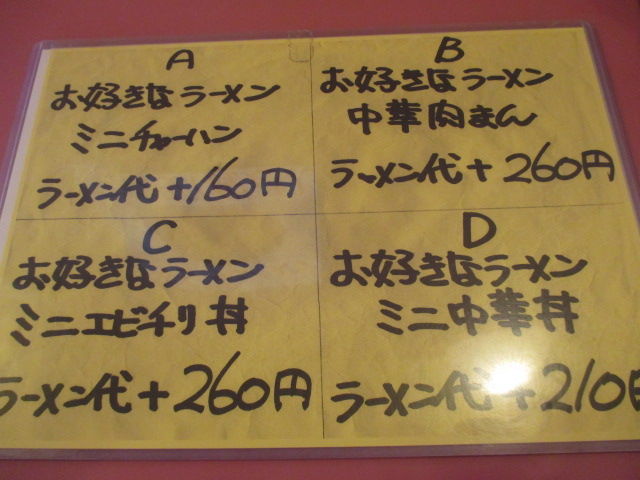 A
お好きなラーメン
ミニチャーハン
ラーメン代+160円
B
お好きなラーメン
中華肉まん
ラーメン代+260円
C
お好きなラーメン
ミニエビチリ丼
ラーメン代+260円
D
お好きなラーメン
ミニ中華丼
ラーメン代+210円